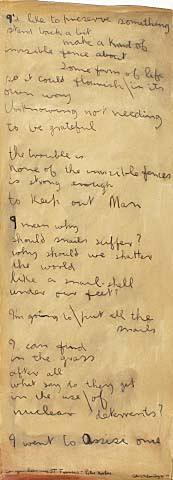 I'd like to preserve something
stand back a bit
make a kind of
invisible fence about
some form of life
so it could flourish \ in its
own way
Unknowing not needing
to be grateful
the trouble is
none of the invisible fences
is strong enough
to keep out Man
I mean why
should snails suffer?
why should we shatter
the world
like a snail-shell
under our feet?
I'm going to \ put all the
snails
I can find
in the grass
after all
what say do they get
in the use of
nuclear \ deterrents?
I want to assise one